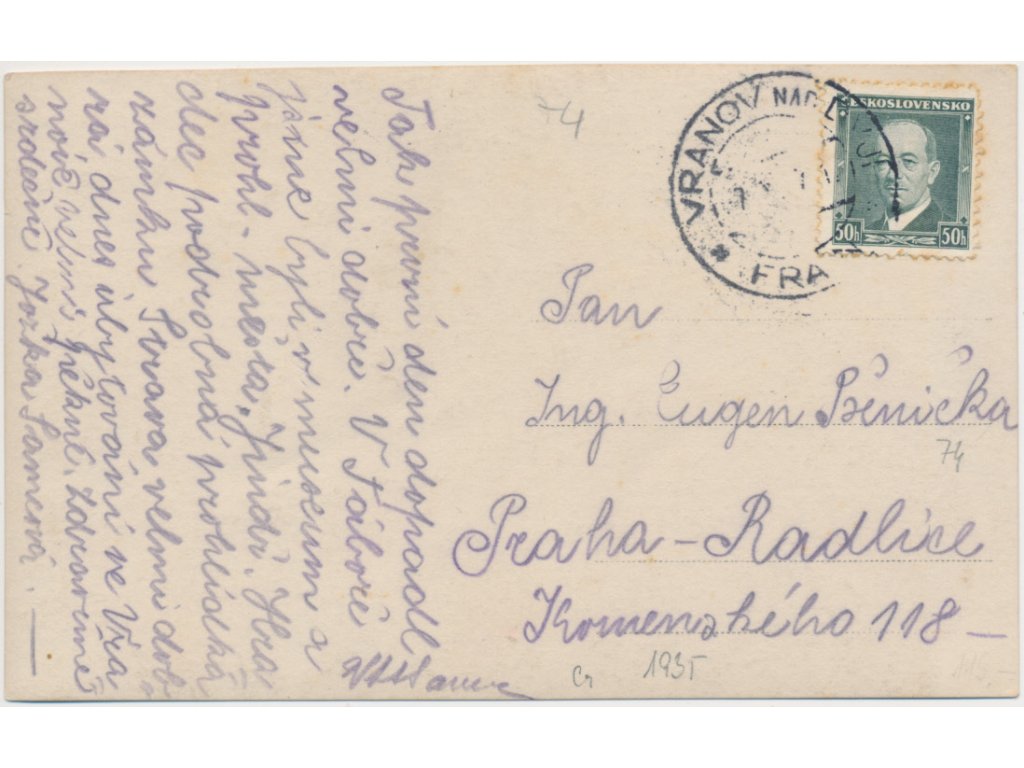 Tak první den dopadl
velmi dobře. V Táboře
jsme byli v museum a
prohl- města, Jindř. Hra
dec podrobná prohlídka
zámku Strava velmi dob
rá dnes ubytování ve Vra
nově velmi pěkné. Zdravíme
srdečně Jožka
74
VRANOV NAD
FRA
ČESKOSLOVENSKO
50h 50h
Pan
Ing. Eugen Pěnička
74
Praha-Radlice
Komenského 118-
Cr 1935
115,-